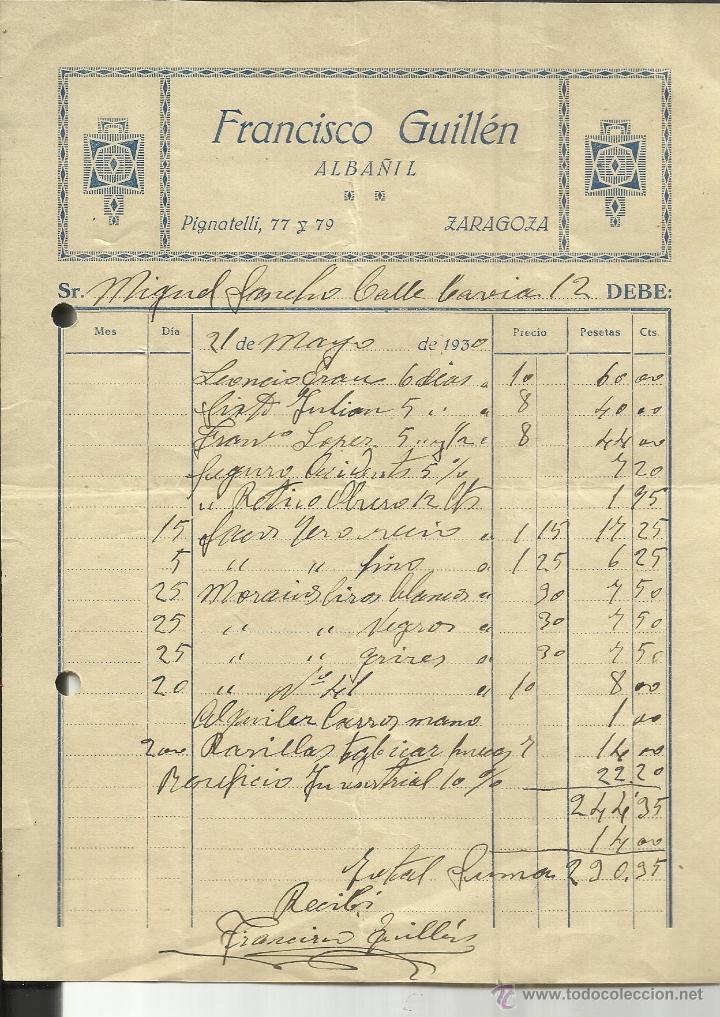 Francisco Guillén
ALBAÑIL
Pignatelli, 77 y 79 ZARAGOZA
Sr. Miguel Sancho Calle Cavia 12 DEBE:
Mes Día 21 de Mayo de 1930 Precio Pesetas Cts.
Leoncio 6 dias " 10 60 00
Julian 5 " " 8 40 00
Franco Lopez 5 " y 1/2 " 8 44 00
Seguro Acidents 5 % 7 20
" Retiro Obrero 12 Cts 1 95
15 Sacos Yeso " 1 15 17 25
5 " " fino " 1 25 6 25
25 blancos " 30 7 50
25 " " Negros " 30 7 50
25 " " grises " 30 7 50
20 " Nº " 10 8 00
Alquiler Carros mano 1 00
200 Rasillas tabicar 7 14 00
Beneficio Industrial 10 % 22 20
244 35
14 00
Total Suma 290.95
Recibi
Francisco Guillén
www.todocoleccion.net